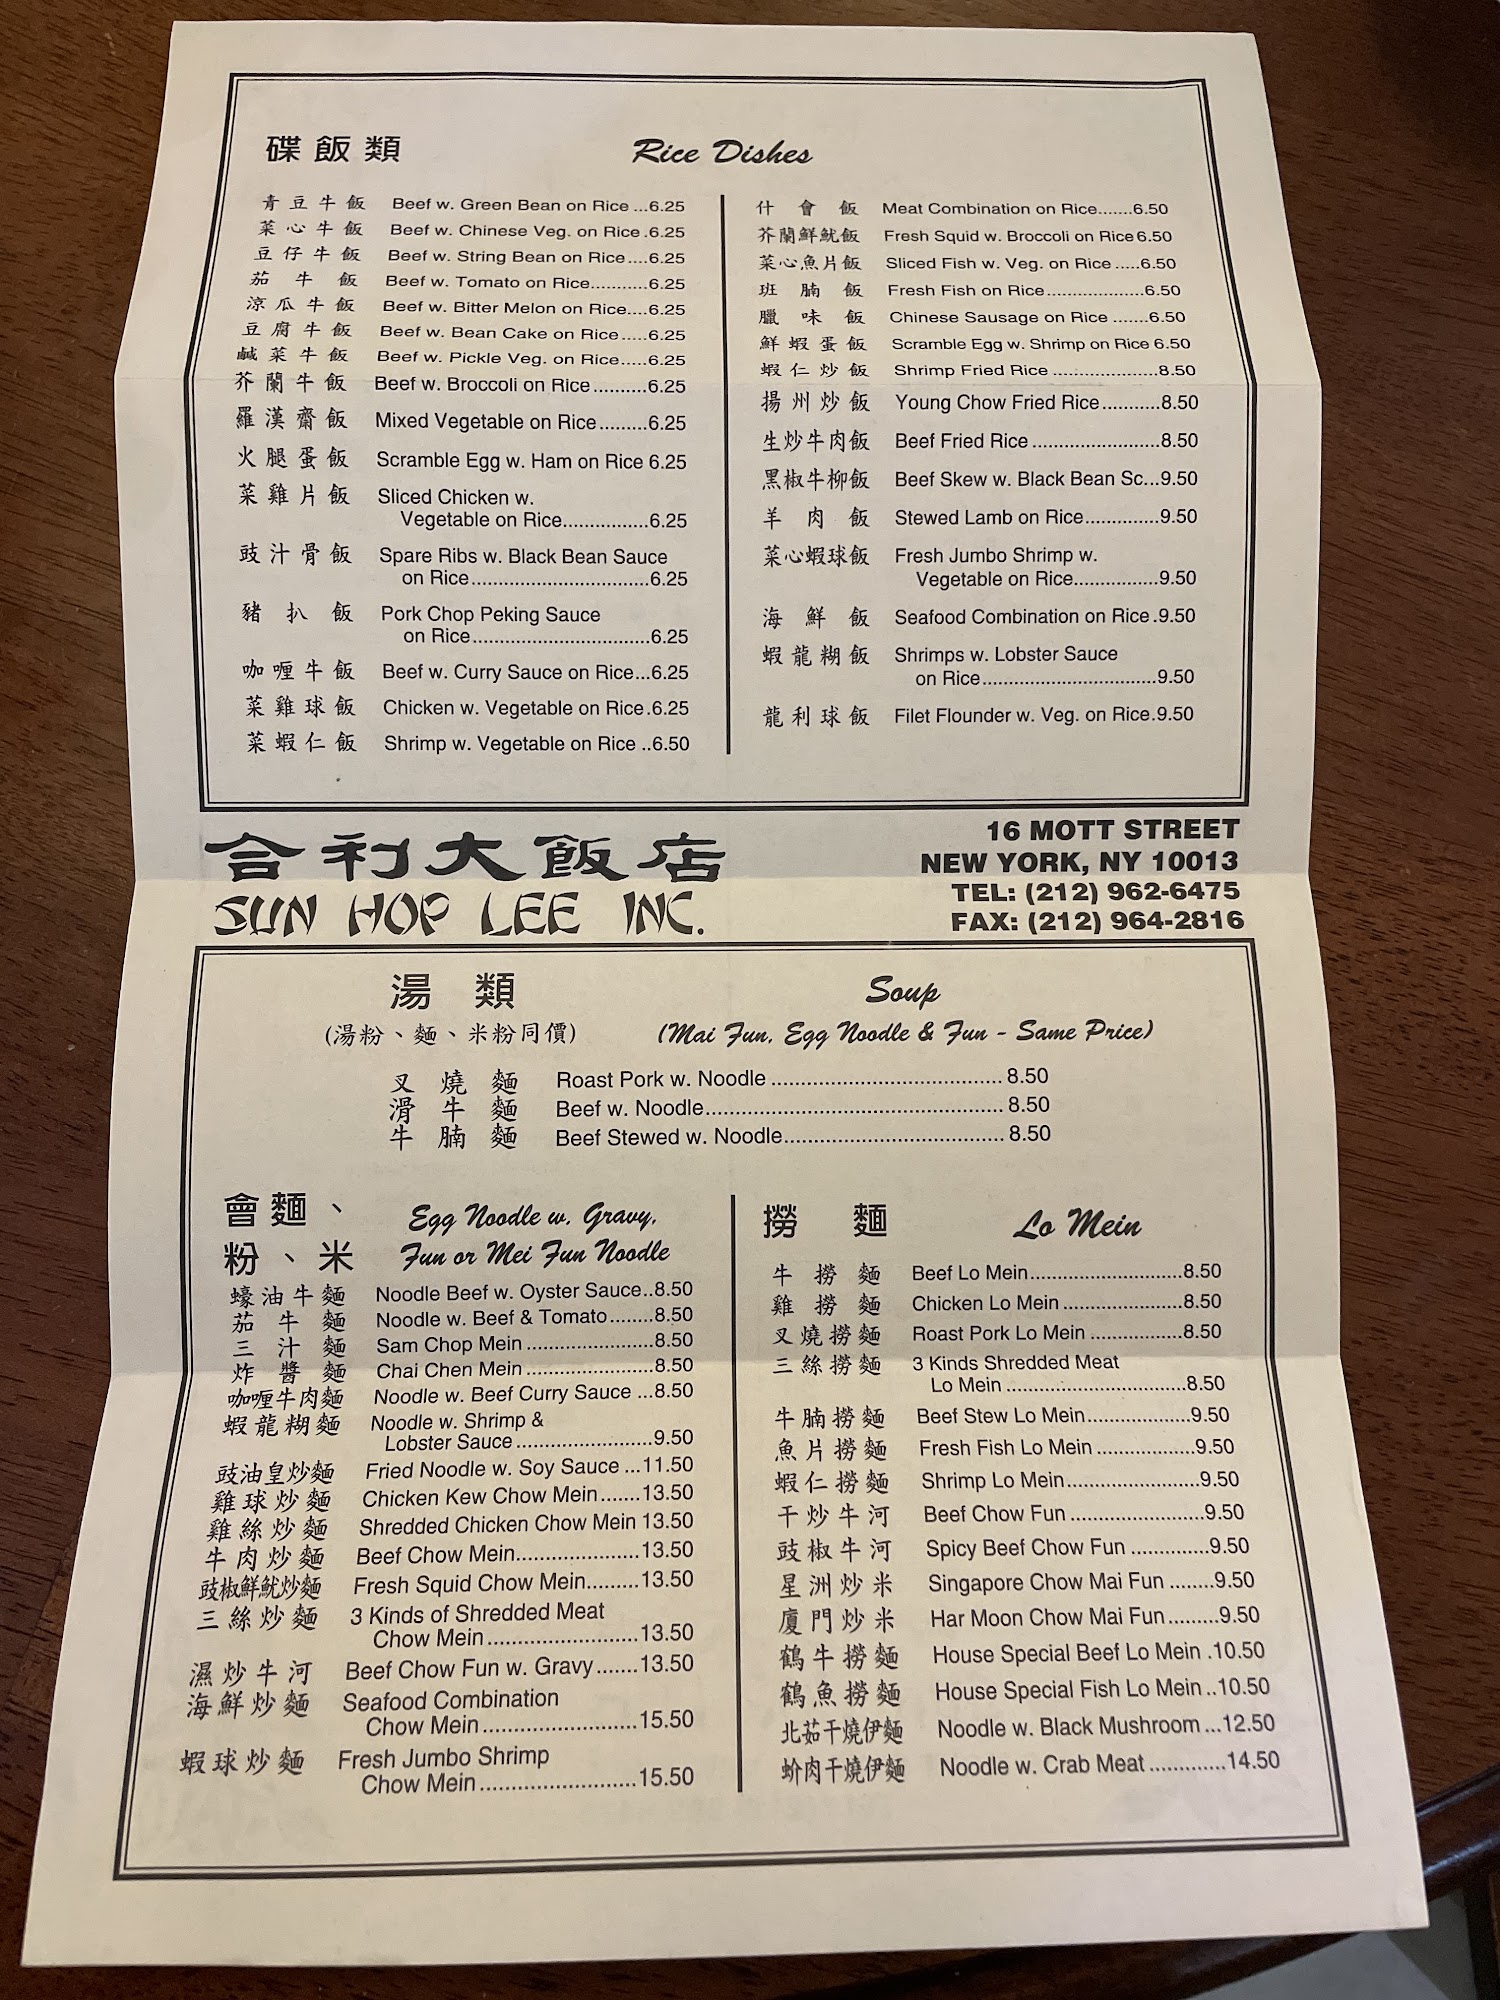 碟飯類 Rice Dishes
青豆牛飯 Beef w. Green Bean on Rice ...6.25
菜心牛飯 Beef w. Chinese Veg. on Rice .6.25
豆仔牛飯 Beef w. String Bean on Rice ....6.25
茄牛飯 Beef w. Tomato on Rice...........6.25
涼瓜牛飯 Beef w. Bitter Melon on Rice....6.25
豆腐牛飯 Beef w. Bean Cake on Rice.....6.25
鹹菜牛飯 Beef w. Pickle Veg. on Rice.....6.25
芥蘭牛飯 Beef w. Broccoli on Rice..........6.25
羅漢齋飯 Mixed Vegetable on Rice.........6.25
火腿蛋飯 Scramble Egg w. Ham on Rice 6.25
菜雞片飯 Sliced Chicken w.
Vegetable on Rice................6.25
豉汁骨飯 Spare Ribs w. Black Bean Sauce
on Rice.................................6.25
豬扒飯 Pork Chop Peking Sauce
on Rice.................................6.25
咖喱牛飯 Beef w. Curry Sauce on Rice...6.25
菜雞球飯 Chicken w. Vegetable on Rice.6.25
菜蝦仁飯 Shrimp w. Vegetable on Rice ..6.50
什會飯 Meat Combination on Rice.......6.50
芥蘭鮮魷飯 Fresh Squid w. Broccoli on Rice 6.50
菜心魚片飯 Sliced Fish w. Veg. on Rice .....6.50
班腩飯 Fresh Fish on Rice....................6.50
臘味飯 Chinese Sausage on Rice .......6.50
鮮蝦蛋飯 Scramble Egg w. Shrimp on Rice 6.50
蝦仁炒飯 Shrimp Fried Rice ....................8.50
揚州炒飯 Young Chow Fried Rice...........8.50
生炒牛肉飯 Beef Fried Rice ........................8.50
黑椒牛柳飯 Beef Skew w. Black Bean Sc...9.50
羊肉飯 Stewed Lamb on Rice..............9.50
菜心蝦球飯 Fresh Jumbo Shrimp w.
Vegetable on Rice................9.50
海鮮飯 Seafood Combination on Rice.9.50
蝦龍糊飯 Shrimps w. Lobster Sauce
on Rice................................9.50
龍利球飯 Filet Flounder w. Veg. on Rice.9.50
合利大飯店
SUN HOP LEE INC.
16 MOTT STREET
NEW YORK, NY 10013
TEL: (212) 962-6475
FAX: (212) 964-2816
湯類 Soup
(湯粉、麵、米粉同價) (Mai Fun, Egg Noodle & Fun - Same Price)
叉燒麵 Roast Pork w. Noodle ....................................... 8.50
滑牛麵 Beef w. Noodle.................................................. 8.50
牛腩麵 Beef Stewed w. Noodle..................................... 8.50
會麵、 Egg Noodle w. Gravy,
粉、米 Fun or Mei Fun Noodle
蠔油牛麵 Noodle Beef w. Oyster Sauce..8.50
茄牛麵 Noodle w. Beef & Tomato........8.50
三汁麵 Sam Chop Mein .......................8.50
炸醬麵 Chai Chen Mein .......................8.50
咖喱牛肉麵 Noodle w. Beef Curry Sauce ...8.50
蝦龍糊麵 Noodle w. Shrimp &
Lobster Sauce .........................9.50
豉油皇炒麵 Fried Noodle w. Soy Sauce ...11.50
雞球炒麵 Chicken Kew Chow Mein.......13.50
雞絲炒麵 Shredded Chicken Chow Mein 13.50
牛肉炒麵 Beef Chow Mein.....................13.50
豉椒鮮魷炒麵 Fresh Squid Chow Mein.........13.50
三絲炒麵 3 Kinds of Shredded Meat
Chow Mein .........................13.50
濕炒牛河 Beef Chow Fun w. Gravy.......13.50
海鮮炒麵 Seafood Combination
Chow Mein .........................15.50
蝦球炒麵 Fresh Jumbo Shrimp
Chow Mein .........................15.50
撈麵 Lo Mein
牛撈麵 Beef Lo Mein............................8.50
雞撈麵 Chicken Lo Mein ......................8.50
叉燒撈麵 Roast Pork Lo Mein .................8.50
三絲撈麵 3 Kinds Shredded Meat
Lo Mein .................................8.50
牛腩撈麵 Beef Stew Lo Mein...................9.50
魚片撈麵 Fresh Fish Lo Mein ..................9.50
蝦仁撈麵 Shrimp Lo Mein........................9.50
干炒牛河 Beef Chow Fun ........................9.50
豉椒牛河 Spicy Beef Chow Fun .............9.50
星洲炒米 Singapore Chow Mai Fun .......9.50
廈門炒米 Har Moon Chow Mai Fun.........9.50
鶴牛撈麵 House Special Beef Lo Mein .10.50
鶴魚撈麵 House Special Fish Lo Mein..10.50
北茹干燒伊麵 Noodle w. Black Mushroom ...12.50
蚧肉干燒伊麵 Noodle w. Crab Meat .............14.50